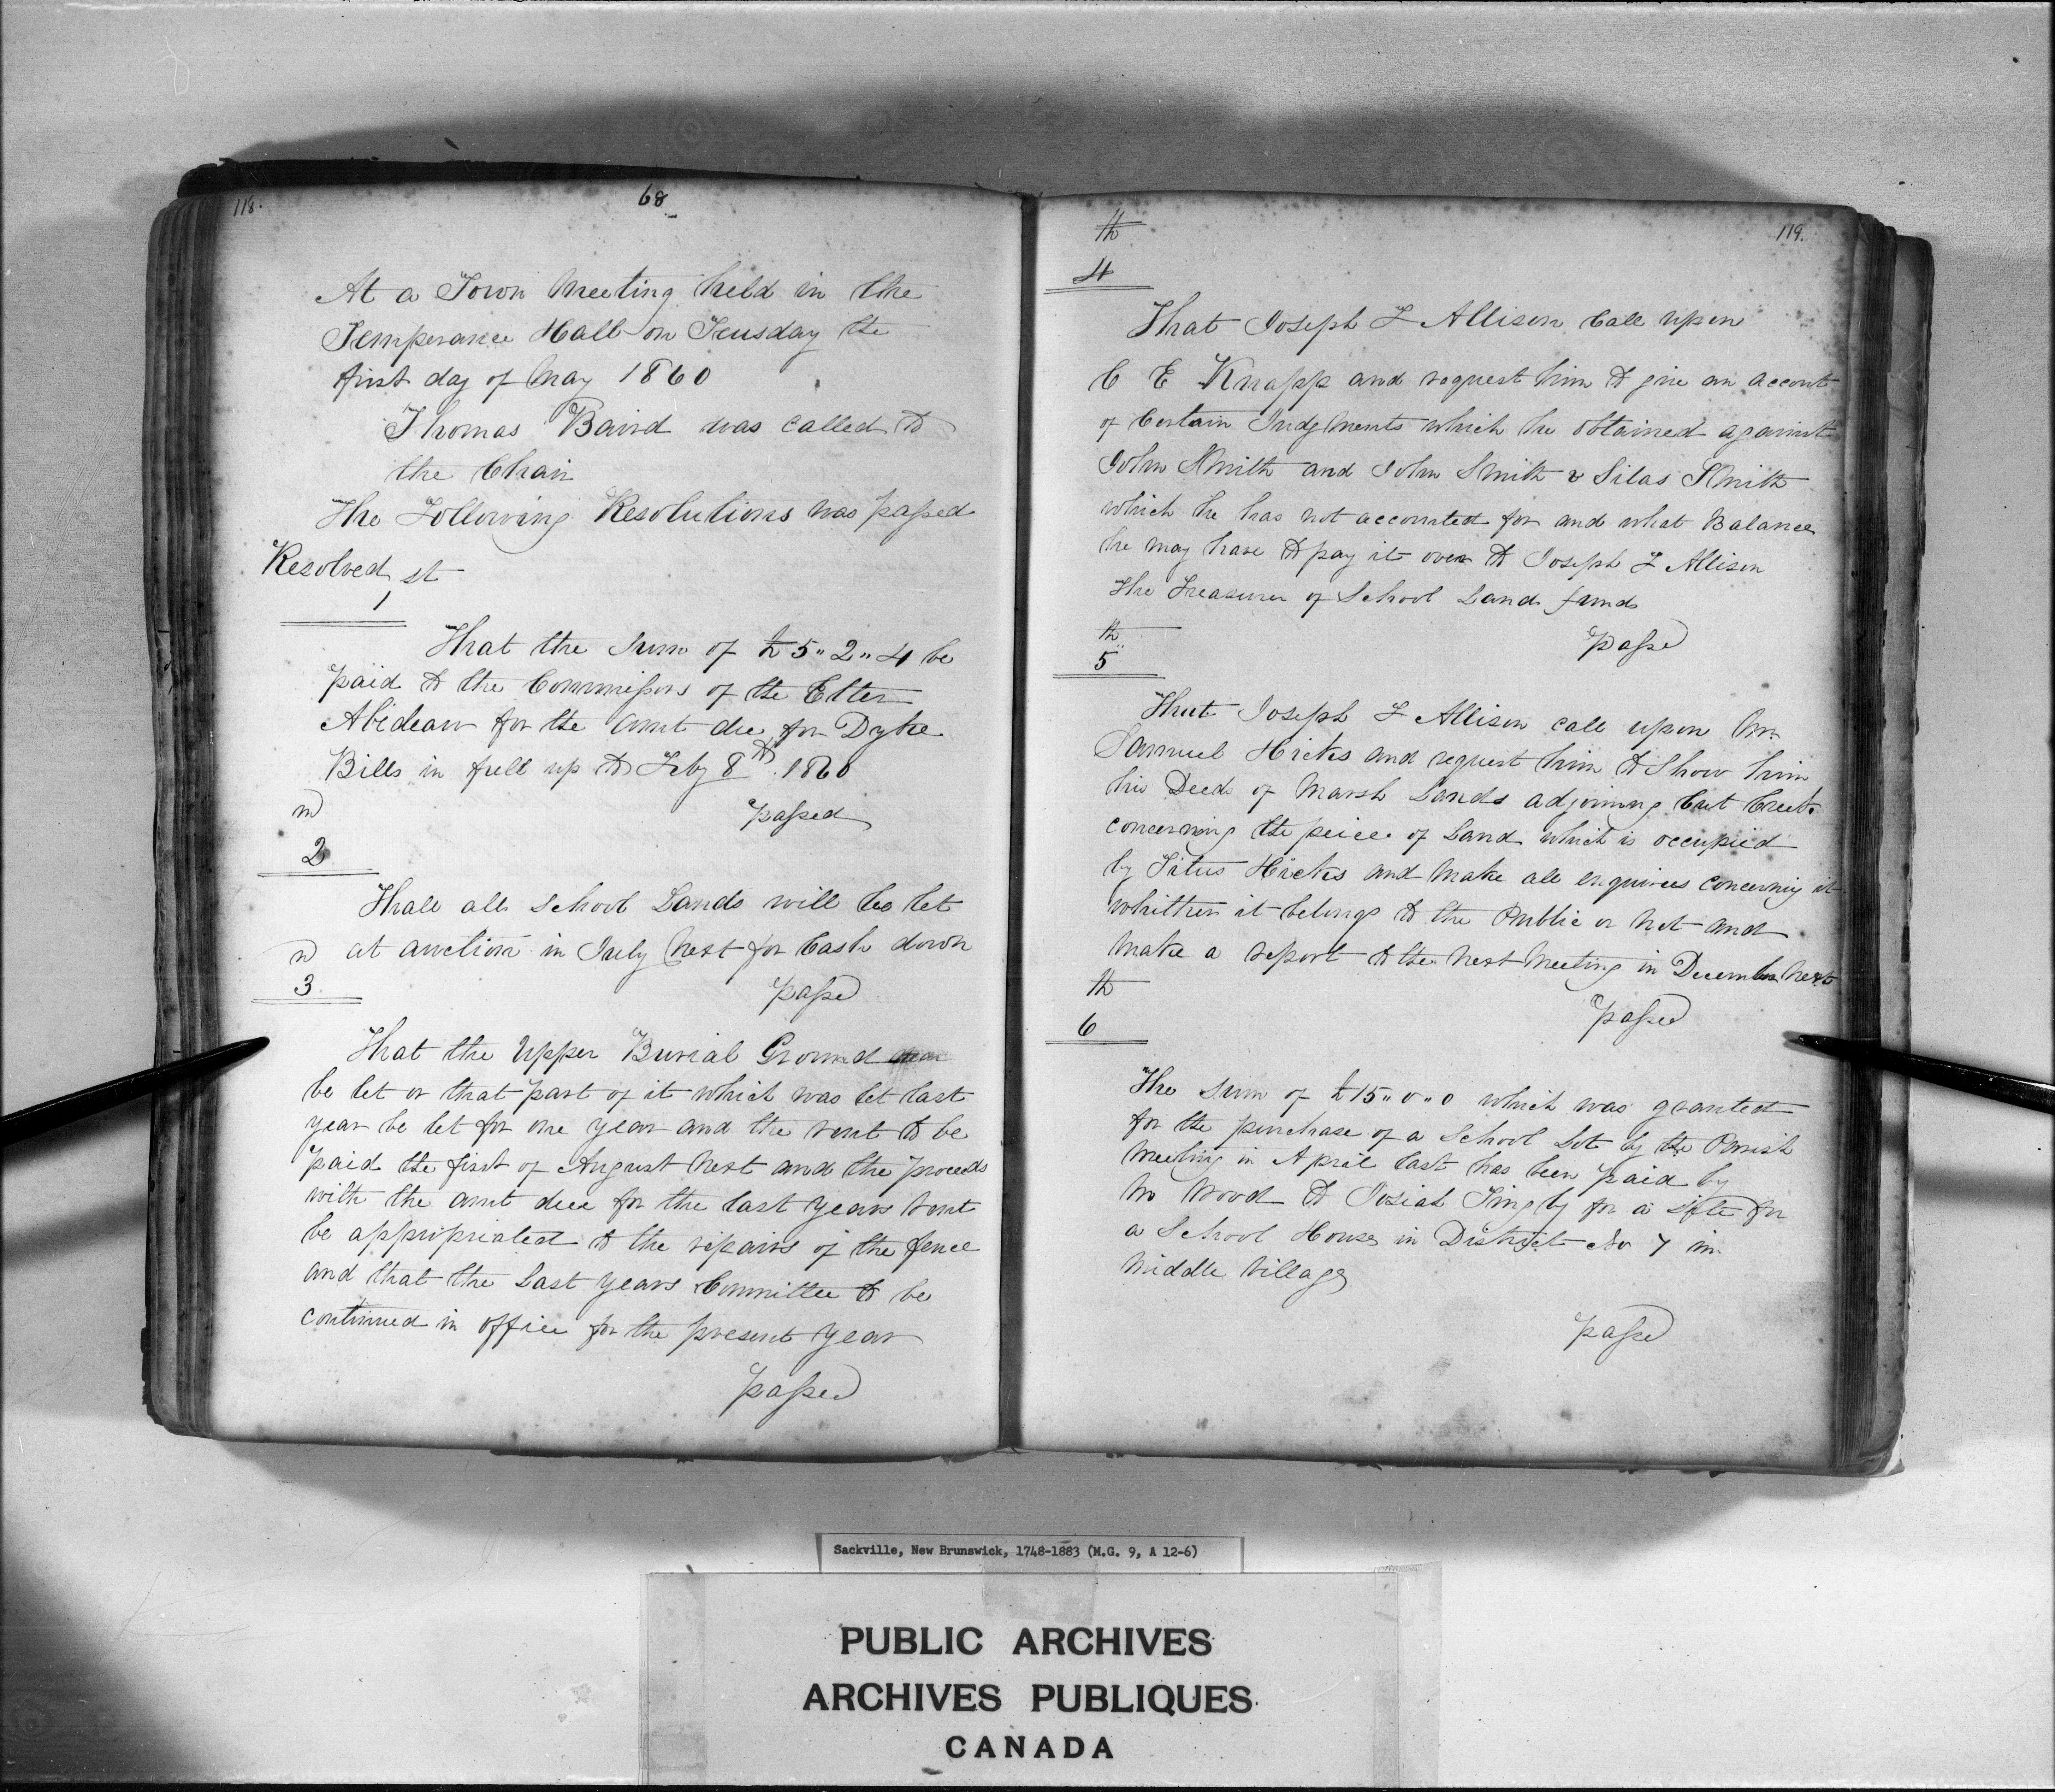 118.
68
At a Town Meeting held in the
Temperance Hall on Teusday the
first day of May 1860
Thomas Baird was called to
the Chair
The Following Resolutions was passed
Resolved st
1
That the Sum of £5"2"4 be
paid to the Commissors of the Etter
Abideau for the amt due for Dyke
Bills in full up to Feby 8th 1860
passed
nd
2
That all School Lands will be let
at auction in July Next for Cash down
d
3
passd
That the Upper Burial Ground
be let or that part of it which was let last
year be let for one year and the rent to be
paid the first of August Next and the proceeds
with the amt due for the last years rent
be appropriated to the repairs of the fence
and that the Last years Committee to be
continued in office for the present year
passed
119.
th
4
That Joseph F Allison Call upon
C E Knapp and request him to give an accont
of Certain Judgments which he obtained against
John Smith and John Smith & Silas Smith
which he has not accounted for and what Balance
he may have to pay it over to Joseph F Allison
the Treasurer of School Land funds
th
5
passd
That Joseph F Allison call upon Mr
Samuel Hicks and request him to Show him
his Deed of Marsh Lands adjoining Cut Creek
concerning the peice of Land which is occupied
by Titus Hicks and Make all enquiries concerning it
whither it belongs to the Public or Not and
Make a report to the Next Meeting in December Next
th
6
passed
The Sum of £15"0"0 which was granted
for the purchase of a School Lot by the Parish
Meeting in April last has been paid by
M Wood to Josiah Tingley for a site for
a School House in District No 7 in
Middle Village
passd
Sackville, New Brunswick, 1748-1883 (M.G. 9, A 12-6)
PUBLIC ARCHIVES
ARCHIVES PUBLIQUES
CANADA